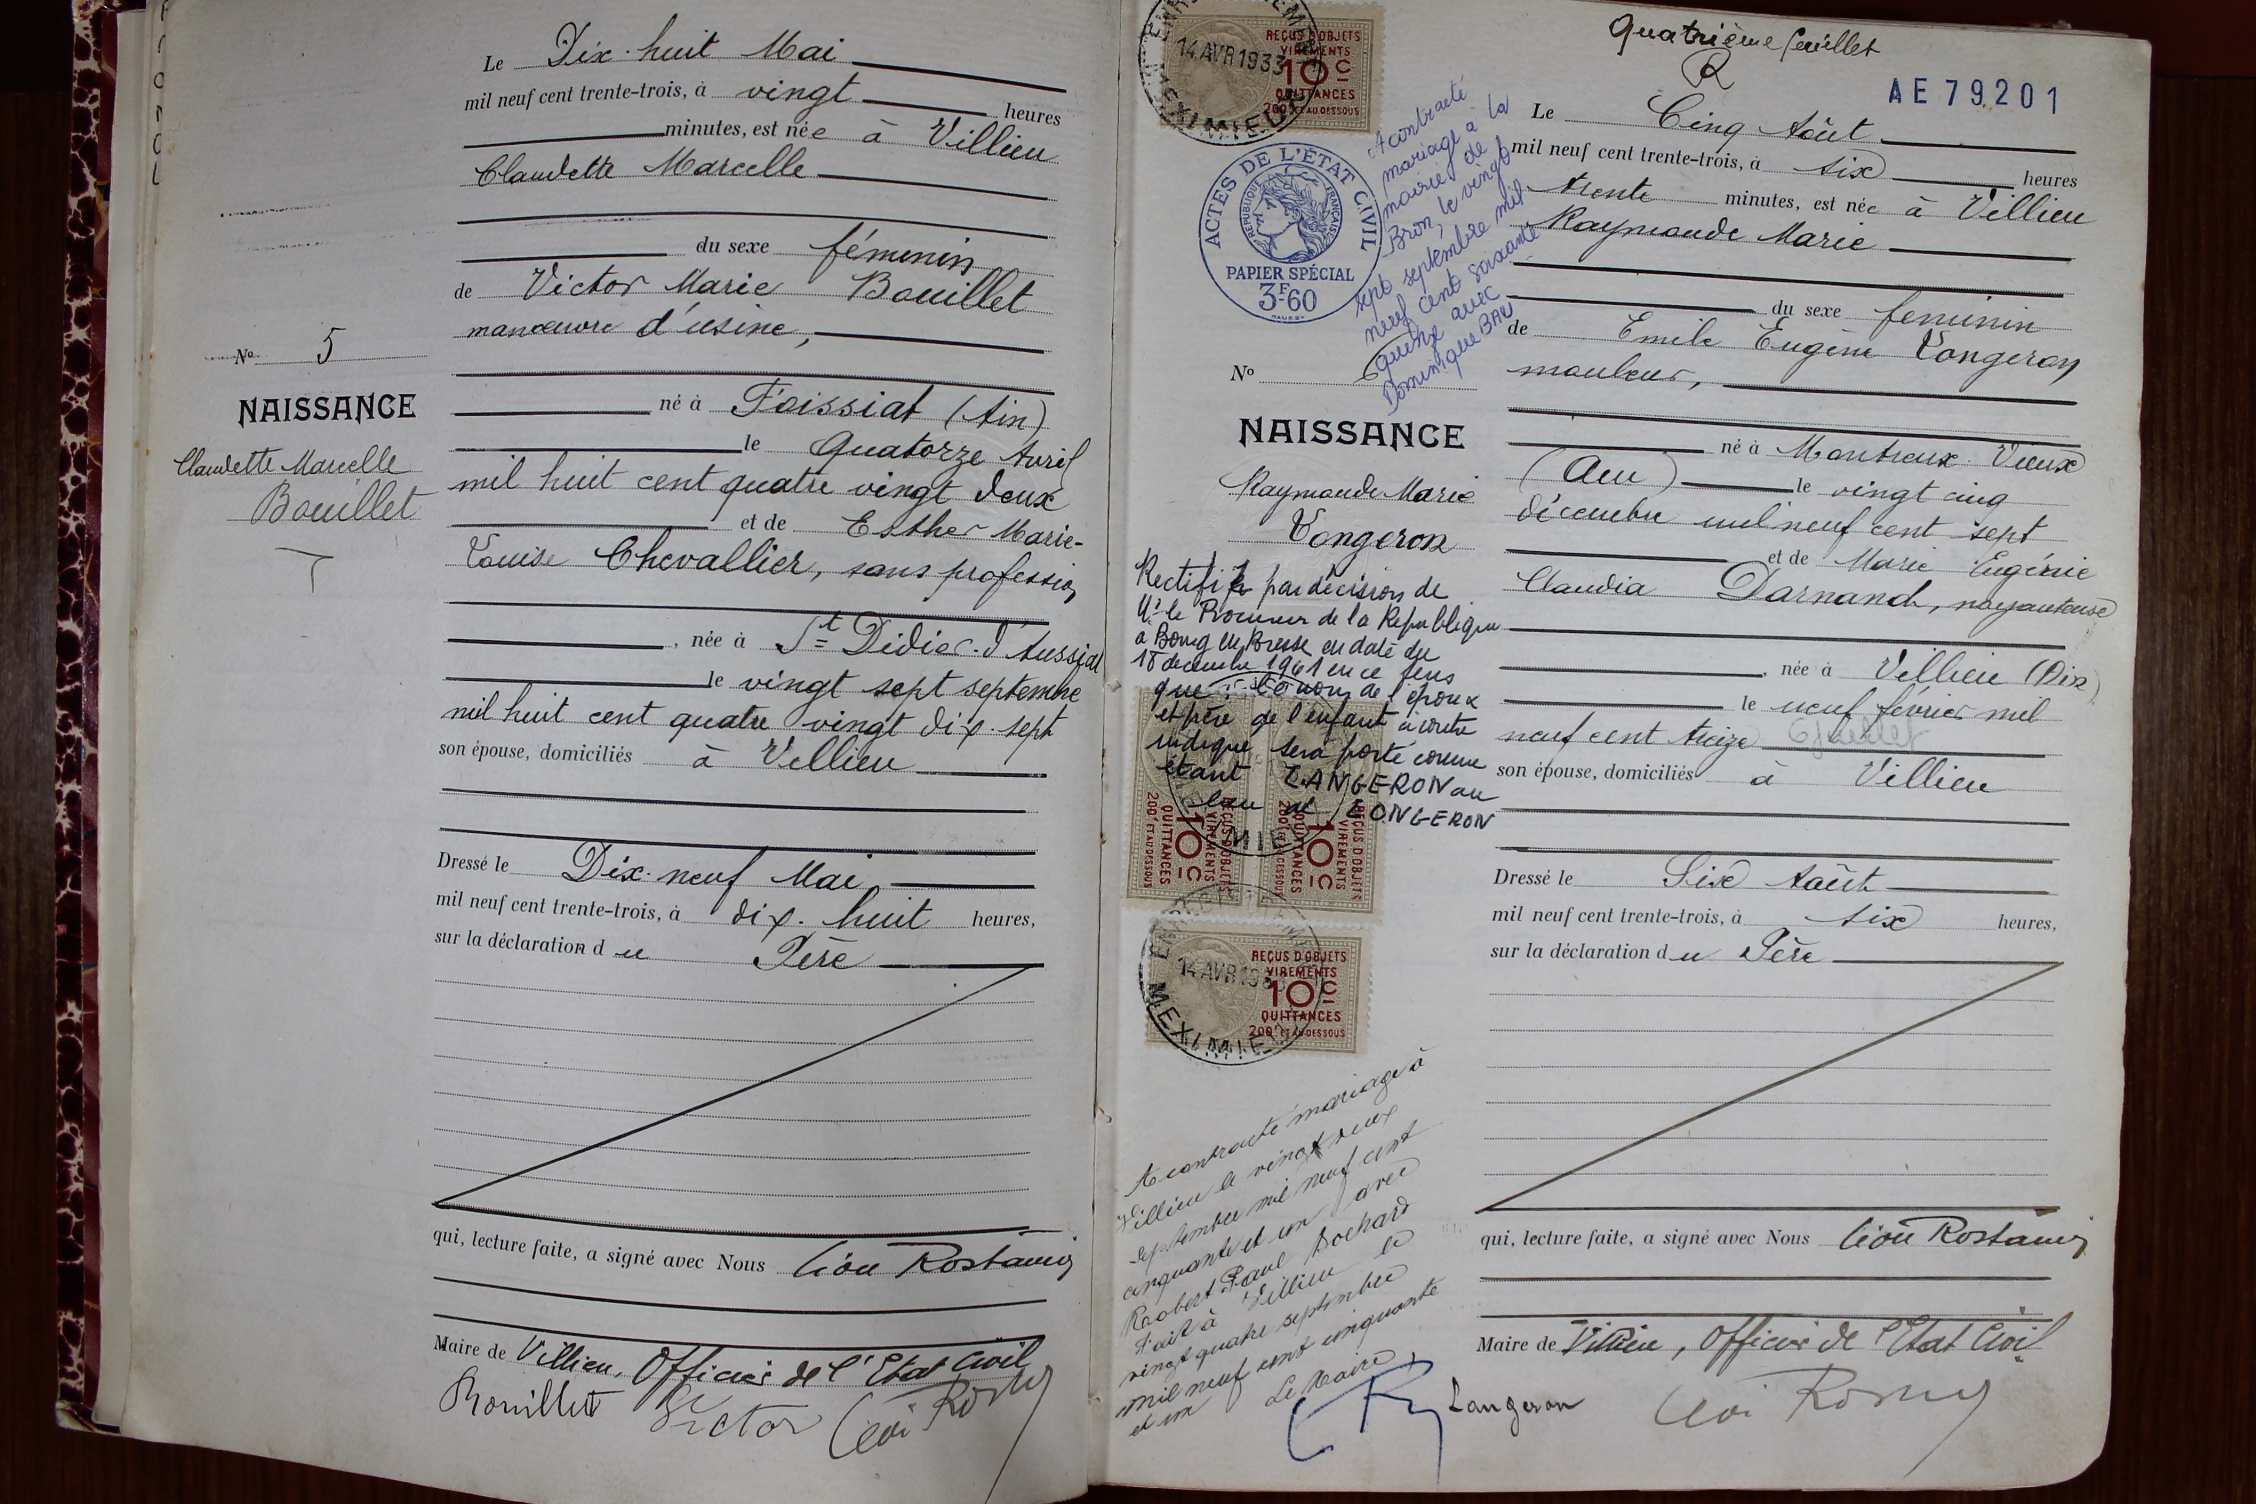 Le Dix-huit Mai
mil neuf cent trente-trois, à vingt heures
minutes, est née à Villieu
Claudette Marcelle
du sexe féminin
de Victor Marie Bouillet
manœuvre d'usine,
né à Foissiat (Ain)
le Quatorze Avril
mil huit cent quatre vingt deux
et de Esther Marie-
Louise Chevallier, sans profession
, née à St Didier-d'Aussiat
le vingt sept septembre
mil huit cent quatre vingt dix-sept
son épouse, domiciliés à Villieu
Dressé le Dix-neuf Mai
mil neuf cent trente-trois, à dix-huit heures,
sur la déclaration du Père
qui, lecture faite, a signé avec Nous Léon Rostaing
Maire de Villieu, Officier de l'Etat Civil
Bouillet Victor
No 5
NAISSANCE
Claudette Marcelle
Bouillet
Quatrième feuillet
AE 79201
Le Cinq Août
mil neuf cent trente-trois, à six heures
trente minutes, est née à Villieu
Raymonde Marie
du sexe féminin
de Emile Eugène Longeron
mouleur,
né à Montreux-Vieux
le vingt cinq
décembre mil neuf cent sept
et de Marie Eugénie
Claudia Darnand,
, née à Villieu (Ain)
le neuf février mil
neuf cent treize
son épouse, domiciliés à Villieu
Dressé le Six Août
mil neuf cent trente-trois, à six heures,
sur la déclaration du Père
qui, lecture faite, a signé avec Nous Léon Rostaing
Maire de Villieu, Officier de l'Etat Civil
Langeron
14 AVR 1933
MEXIMIEUX
REÇUS D'OBJETS
VIREMENTS
10 C
QUITTANCES
200F ET AU-DESSOUS
ACTES DE L'ÉTAT CIVIL
RÉPUBLIQUE FRANÇAISE
PAPIER SPÉCIAL
3F60
A contracté
mariage à la
mairie de
Bron, le vingt
sept septembre mil
neuf cent soixante
quinze avec
Dominique BAU
No 6
NAISSANCE
Raymonde Marie
Longeron
Rectifié par décision de
Mr le Procureur de la République
à Bourg en Bresse en date du
18 décembre 1961 en ce sens
que le nom de l'époux
et père de l'enfant ci contre
indiqué sera porté comme
étant LANGERON au
lieu de LONGERON
REÇUS D'OBJETS
VIREMENTS
10 C
QUITTANCES
200F ET AU-DESSOUS
REÇUS D'OBJETS
VIREMENTS
10 C
QUITTANCES
14 AVR 193
MEXIMIEUX
REÇUS D'OBJETS
VIREMENTS
10 C
QUITTANCES
200F ET AU-DESSOUS
A contracté mariage à
Villieu le vingt deux
septembre mil neuf cent
cinquante et un avec
Robert Paul Bochard
Fait à Villieu le
vingt quatre septembre
mil neuf cent cinquante
et un Le Maire,